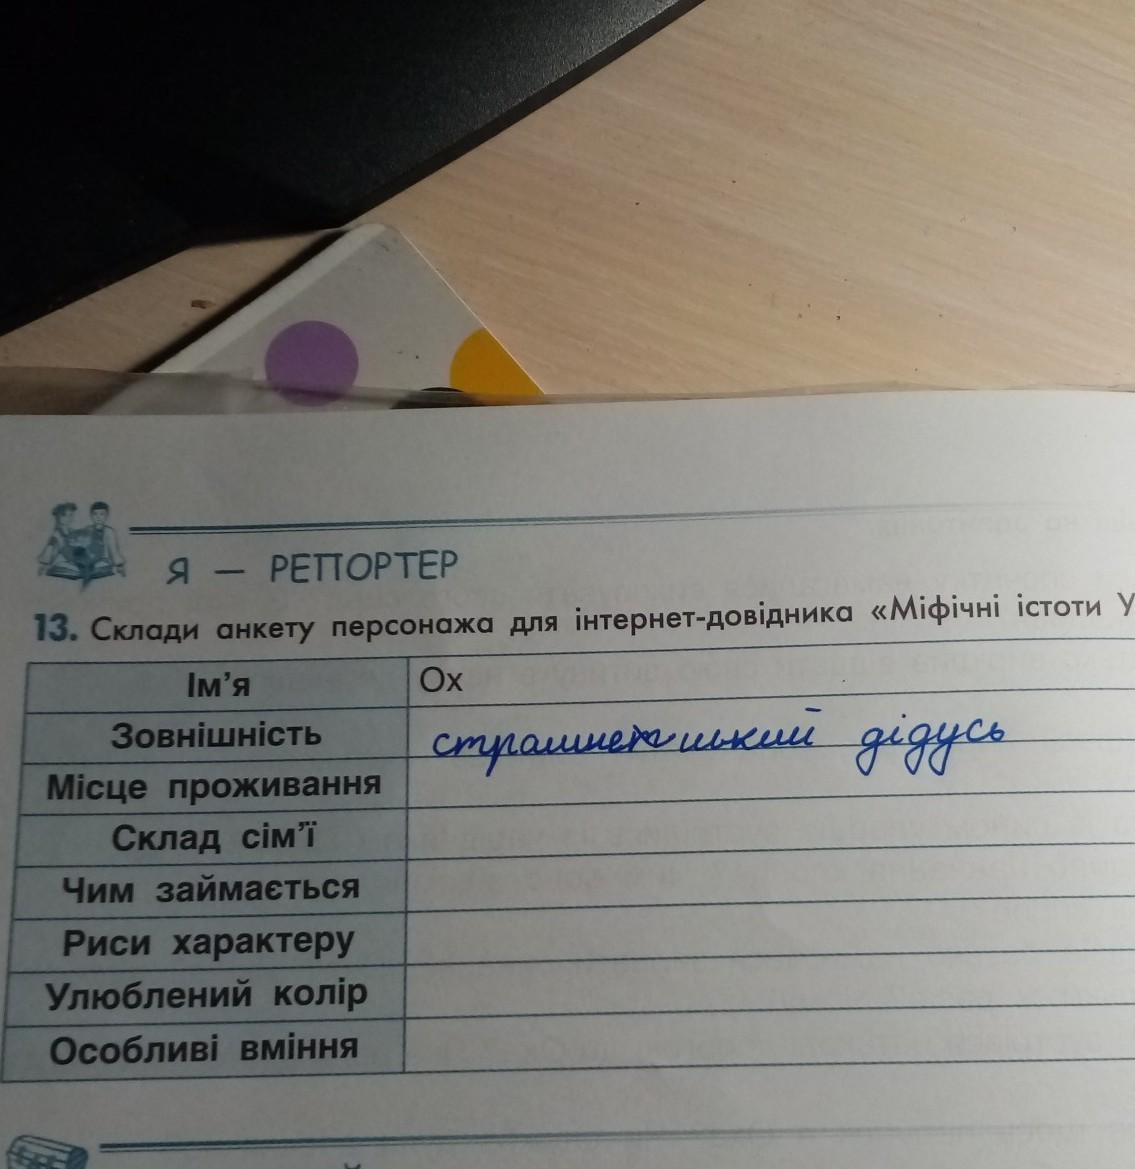 Я — РЕПОРТЕР
13. Склади анкету персонажа для інтернет-довідника «Міфічні істоти У
Ім'я Ох
Зовнішність страшнетнький дідусь
Місце проживання
Склад сім'ї
Чим займається
Риси характеру
Улюблений колір
Особливі вміння